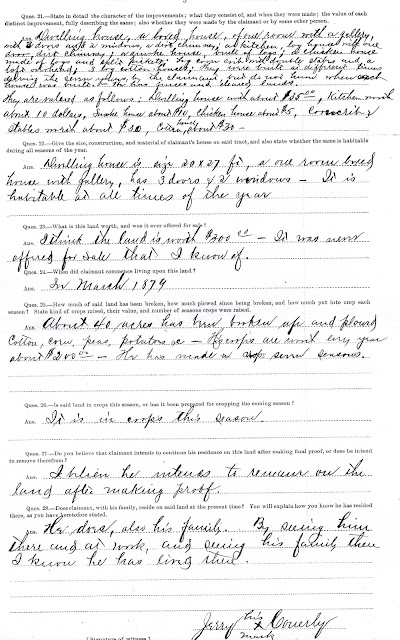 Ques. 21.—State in detail the character of the improvements; what they consist of, and when they were made; the value of each
distinct improvement, fully describing the same; also whether they were made by the claimant or by some other person.
Ans. Dwelling house, a boxed house, of one room with a gallery,
with 3 doors and 2 windows, a dirt chimney; a kitchen, log house with one
door, dirt chimney; a smoke house, made of logs, a chicken house
made of logs and split pickets; log corn crib with double stables and a
3 cotton houses; They were built at different times
during the by the claimant but do not know when each
house was built. He has fences and cleared lands.
They are valued as follows: Dwelling house worth about $50.00, Kitchen worth
about 10 dollars, Smoke house about $10, chicken house about $5, Corn crib &
stables worth about $20, Cotton houses about $30 —
Ques. 22.—Give the size, construction, and material of claimant's house on said tract, and also state whether the same is habitable
during all seasons of the year.
Ans. Dwelling house is size 20 x 27 ft, a one room boxed
house with gallery, has 3 doors & 2 windows — It is
habitable at all times of the year
Ques. 23.—What is this land worth, and was it ever offered for sale?
Ans. I think the land is worth $200.00 — It was never
offered for sale that I know of.
Ques. 24.—When did claimant commence living upon this land?
Ans. In March 1879
Ques. 25.—How much of said land has been broken, how much plowed since being broken, and how much put into crop each
season? State kind of crops raised, their value, and number of seasons crops were raised.
Ans. About 40 acres has been broken up and plowed
Cotton, corn, peas, potatoes &c — His crops are worth every year
about $200.00 — He has made a crop seven seasons.
Ques. 26.—Is said land in crops this season, or has it been prepared for cropping the coming season?
Ans. It is in crops this season.
Ques. 27.—Do you believe that claimant intends to continue his residence on this land after making final proof, or does he intend
to remove therefrom?
Ans. I believe he intends to remain on the
land after making proof.
Ques. 28.—Does claimant, with his family, reside on said land at the present time? You will explain how you know he has resided
there, as you have heretofore stated.
Ans. He does, also his family. By seeing him
there and at work, and seeing his family there
I know he has lived there.
Jerry his x mark Coverly
[Signature of witness.]